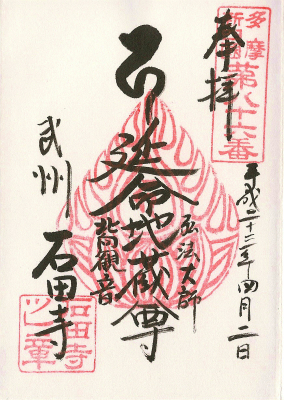 奉拝
多摩
新四国
第八十六番
平成二十三年四月二日
延命地蔵尊
弘法大師
北向観音
武州
石田寺
石田寺